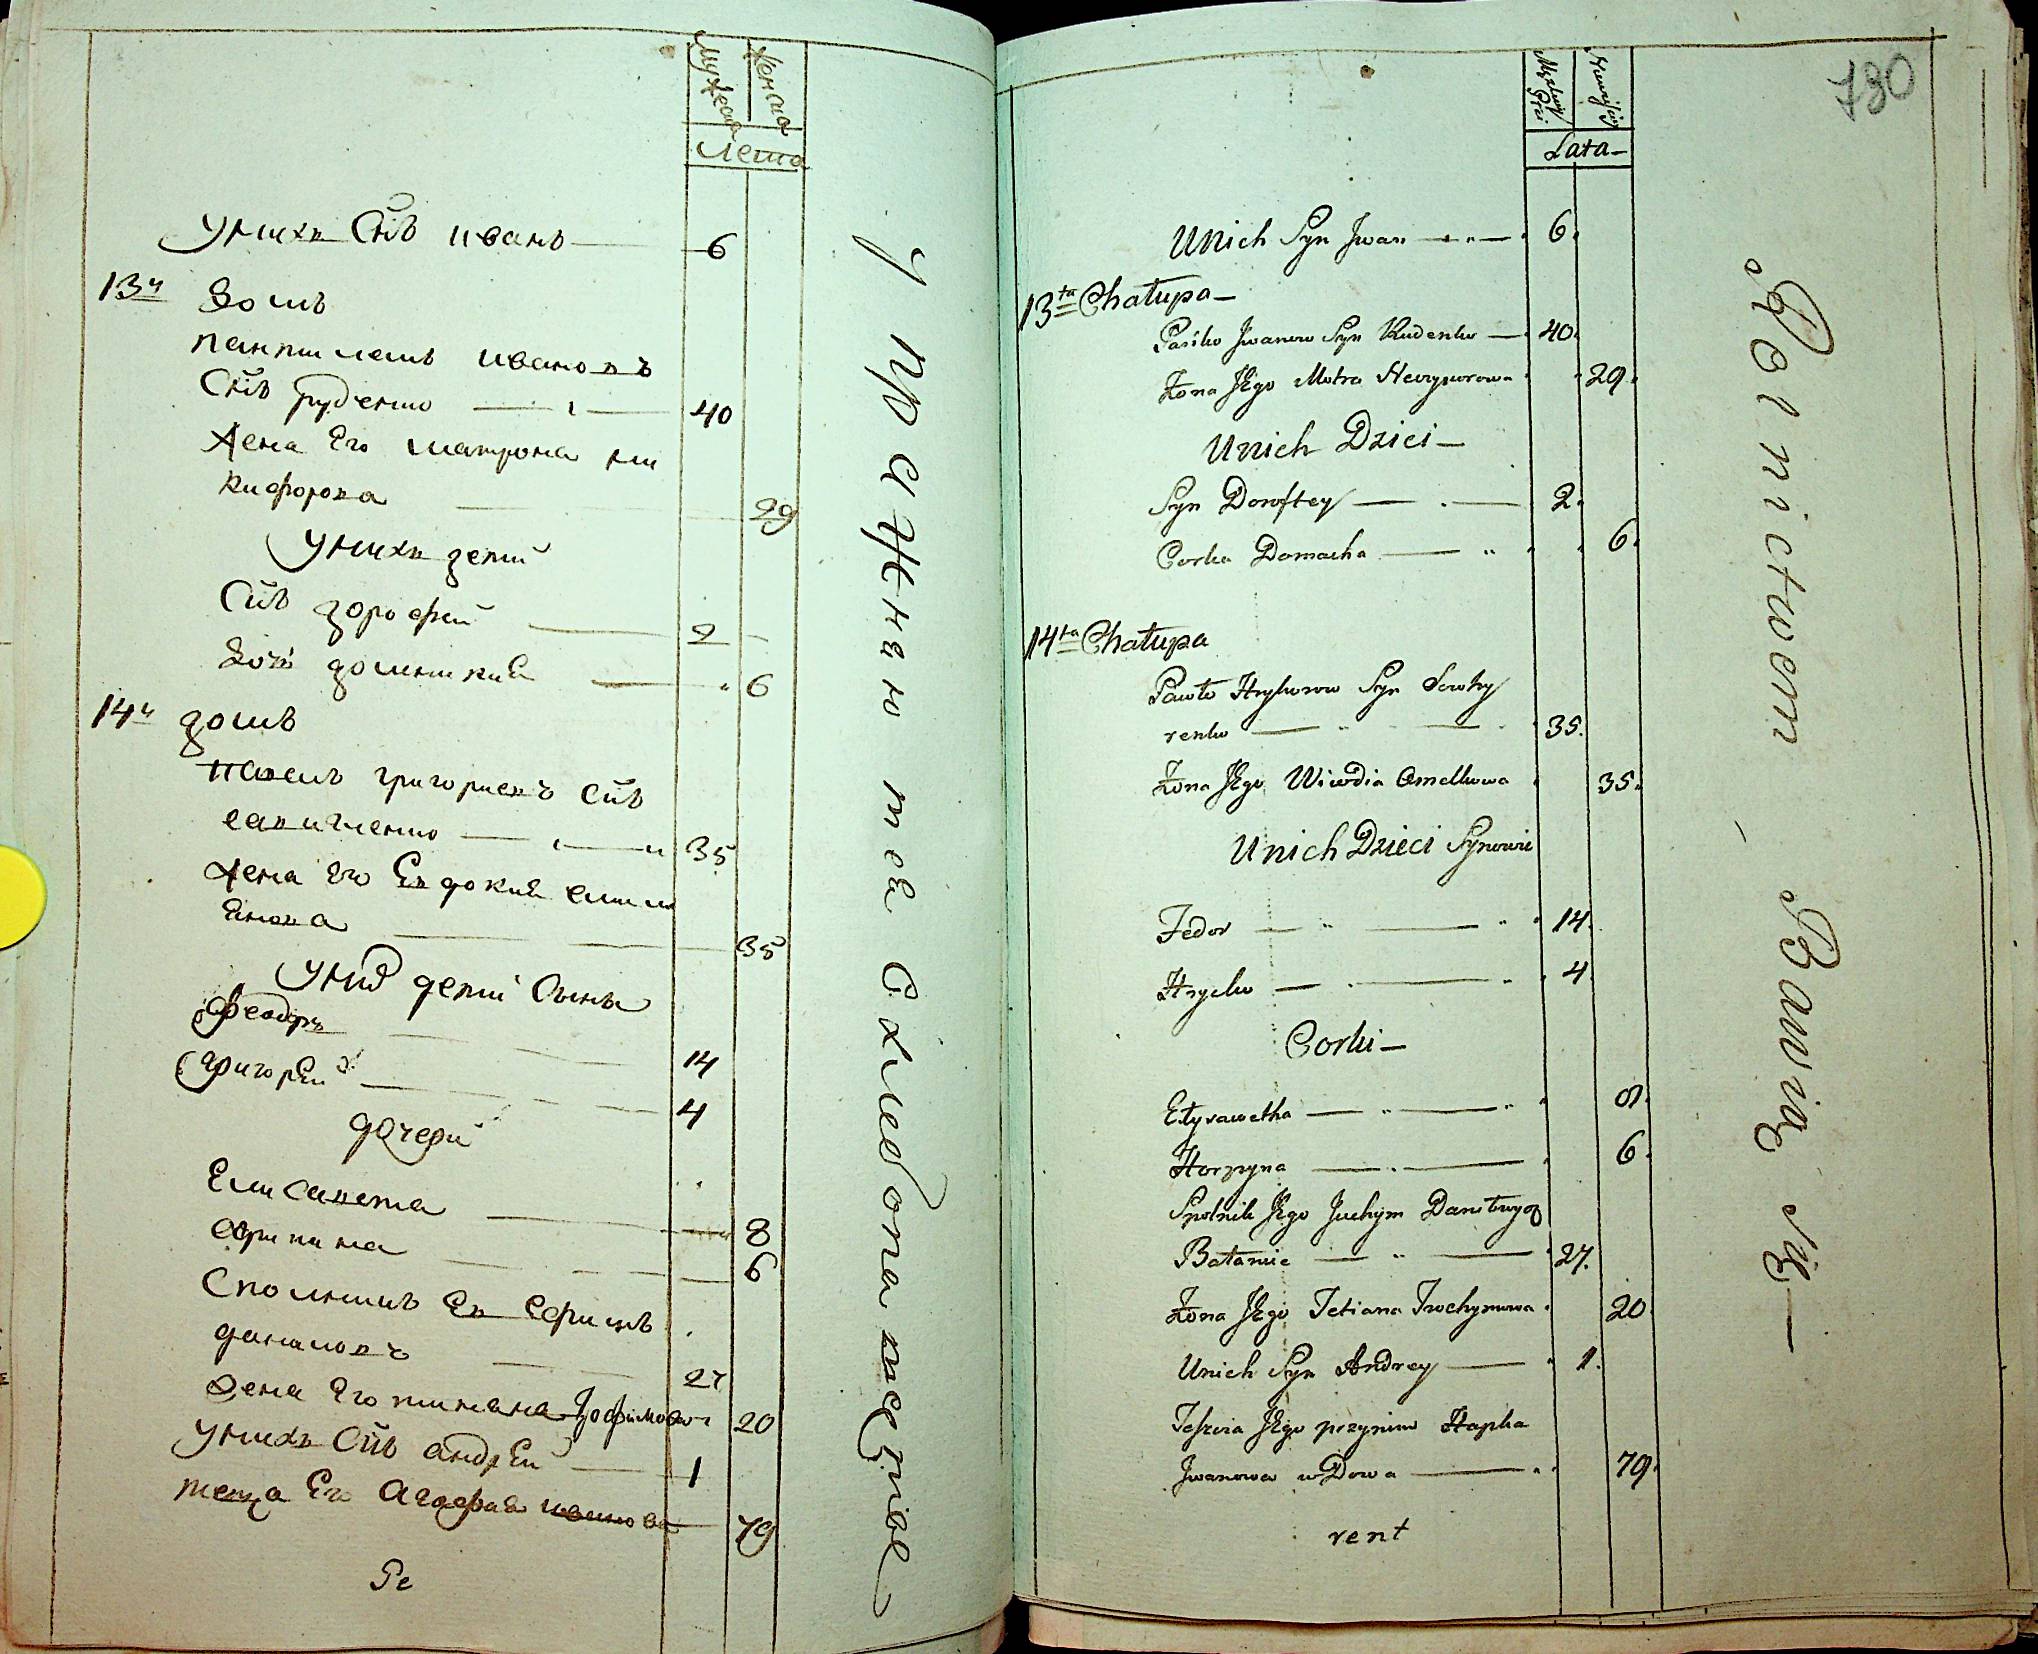 Мужеска
Женска
Лета
Унихъ Снъ иванъ 6
13й домъ
пантилемъ ивановъ
Снъ руденко 40
жена Его матрона ни
кифорова 29
Унихъ дети
Снъ дорофей 2
дочь домникия 6
14й домъ
павелъ григориевъ Снъ
савиченко 35
жена Его Евдокия емили
янова 35
Уних дети Сыны
Феодоръ 14
григорей 4
дочери
Елисавета 8
агрипина 6
Ефимъ
даниловъ 27
жена Его титиана трофимова 20
Унихъ Снъ андрей 1
теща Его Агафия иванова 79
Ре
упражнениемъ Хлебопашества
780
Lata
Unich Syn Jwan 6.
13ta Chałupa
Paśko Jwanow Syn Rudenko 40.
Żona JEgo Motra Neczyporowa 29.
Unich Dzieci
Syn Dowftey 2.
Corka Domacha 6.
14ta Chałupa
Pawło Hryhorow Syn Sawky
renko 35.
Żona JEgo Wiwdia Omelkowa 35.
Unich Dzieci Synowie
Fedor 14.
Hryćko 4.
Corki
Ełyzawetha 8.
Horpyna 6.
Spolnik JEgo Juchym Daniłowy
Żona JEgo Tetiana Trochymowa 20.
Unich Syn Andrey 1.
Teszcza JEgo przynim Hapka
Jwanowa wDowa 79.
rent
Rolnictwem Bawią Się